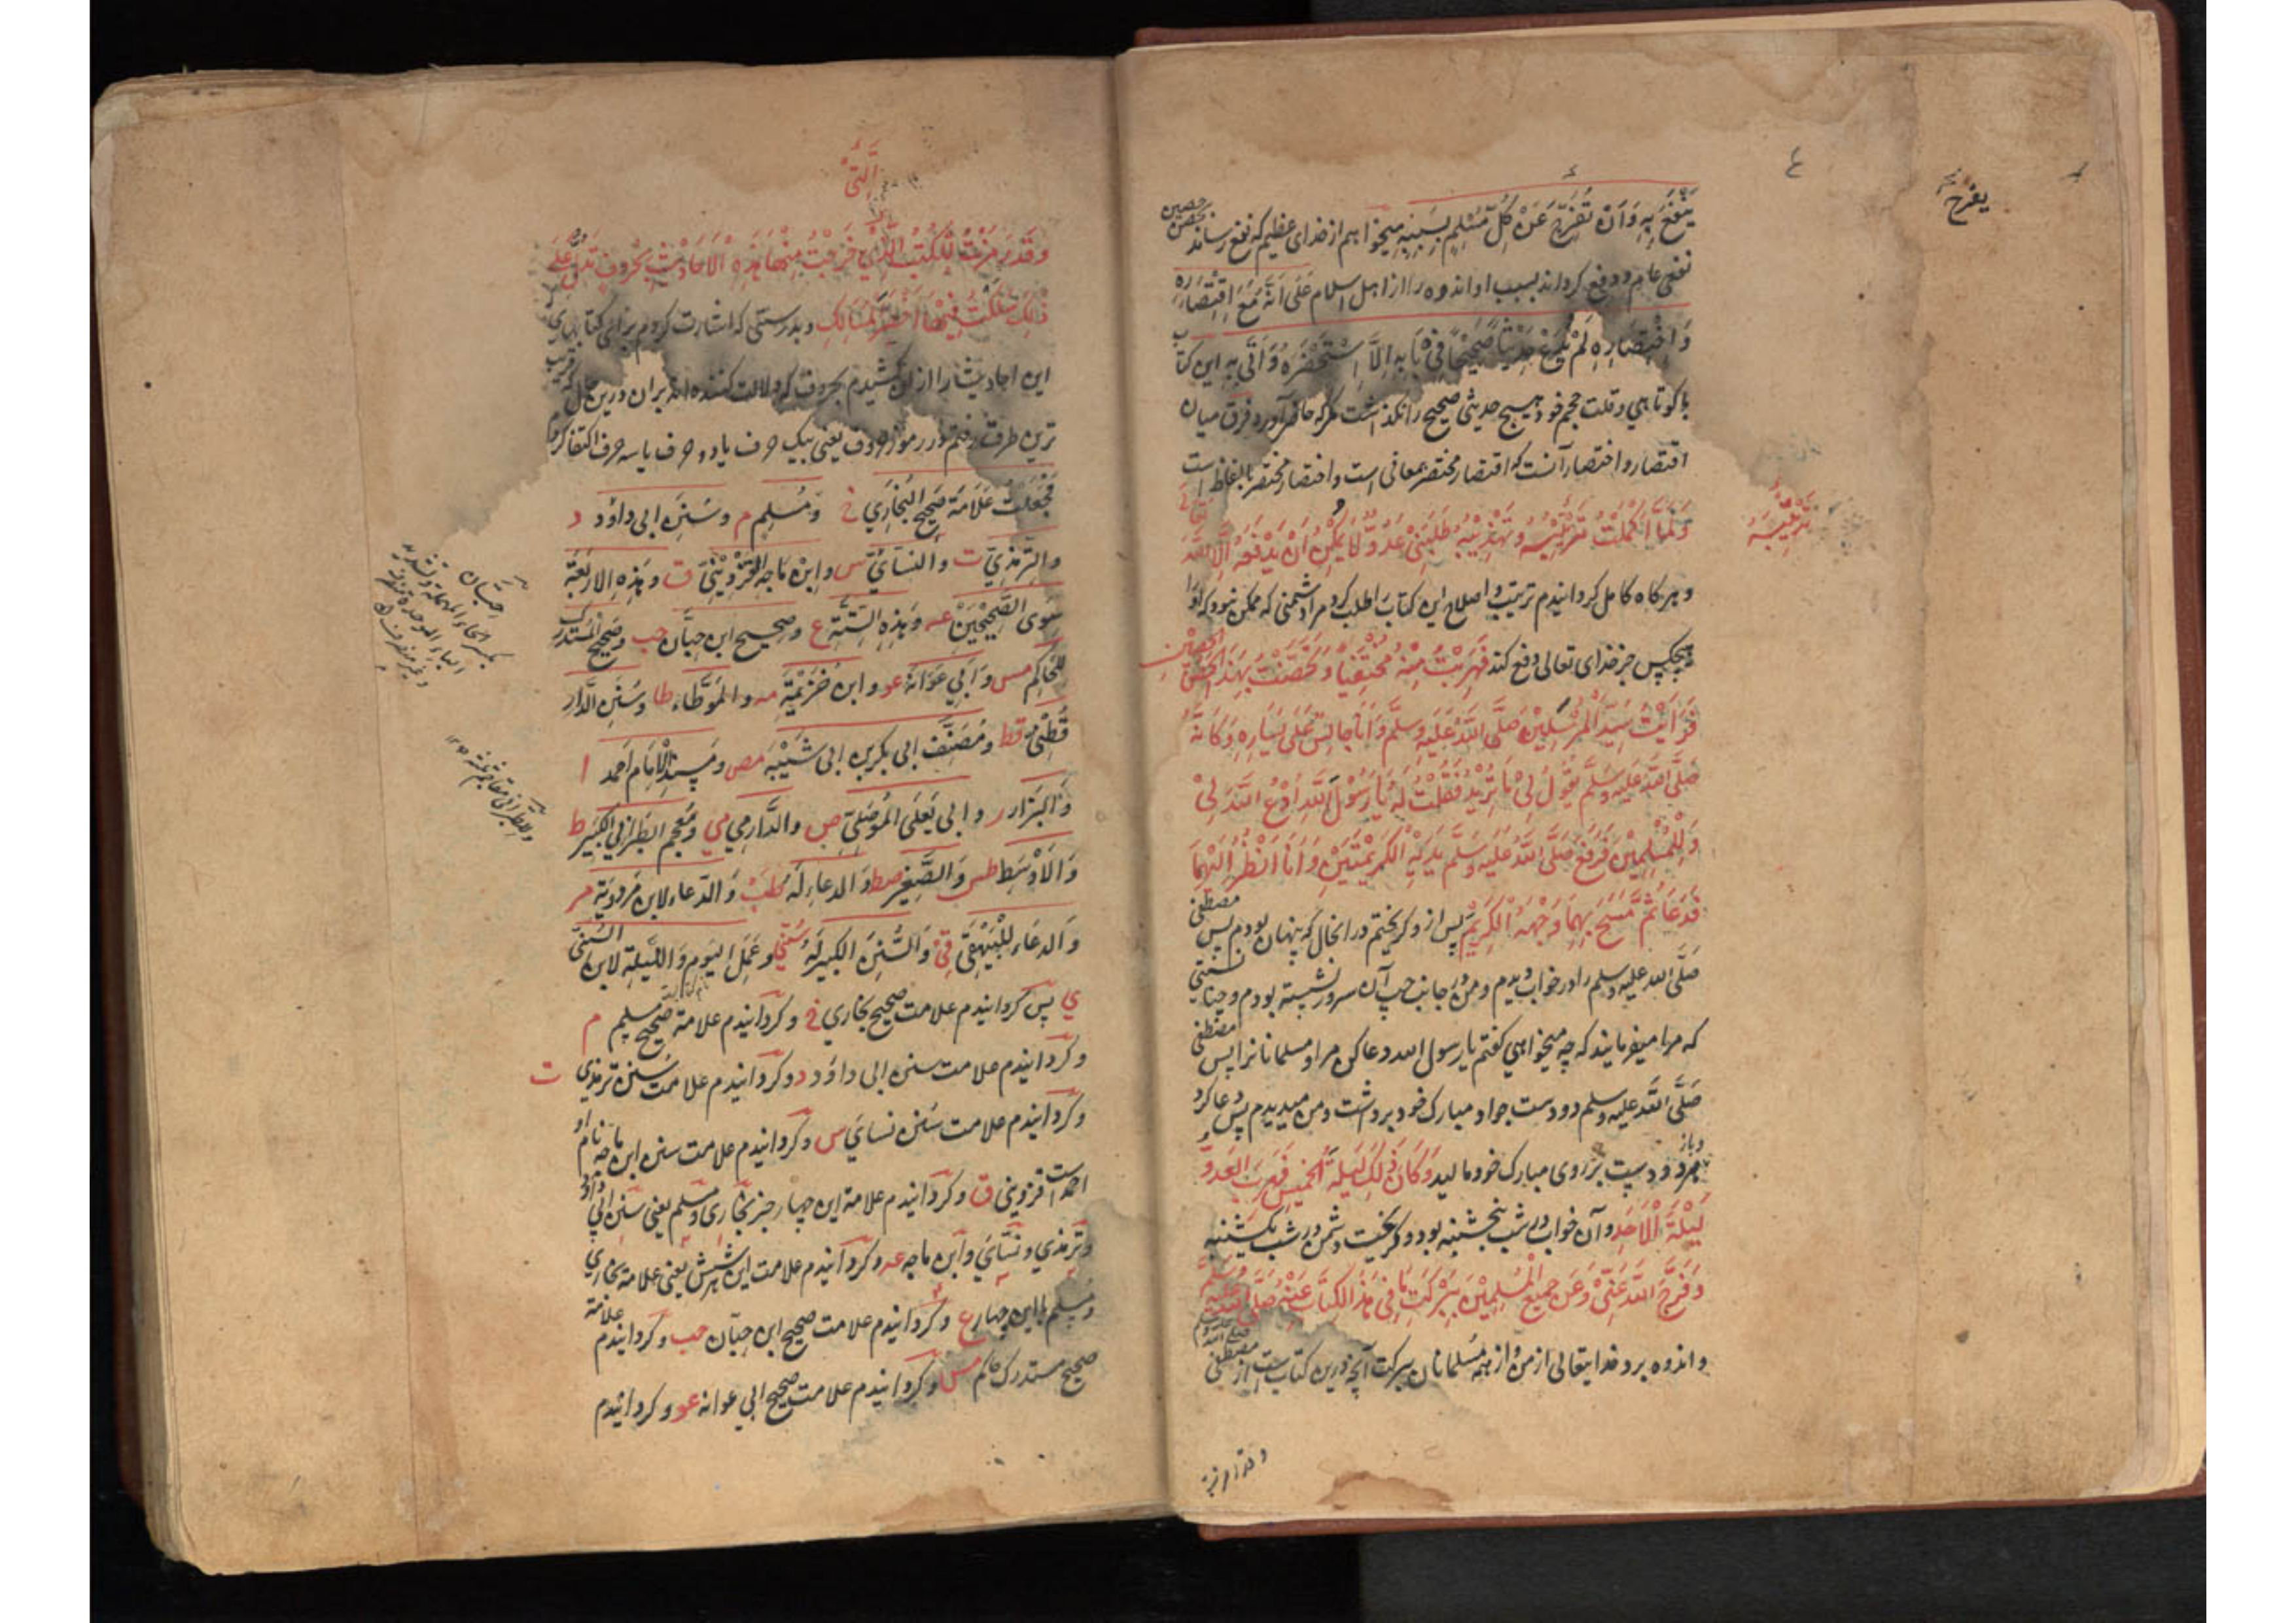 یفرج
ینفع به وان تفرج عن کل مسلم بسببه میخواهم از خدای عظیم که نفع رساند
نفعی عام و دفع کرداند بسبب او اندوه را از اهل اسلام علی انه مع اقتصاره
واختصاره لم یدع حدیثا صحیحا فی بابه الا استحضره واتی به این کتاب
با کوتاهی و قلت حجم خود هیچ حدیثی صحیح را نکذاشت مکر که حاضر آورد و فرق میان
اقتصار و اختصار آنست که اقتصار مختصر بمعانی است و اختصار مختصر بالفاظ است
ولما اکملت ترتیبه وتهذیبه طلبنی عدو لا یمکن ان یدفعه الا الله
تعالی
ترتیبه
و هر کاه کامل کردانیدم ترتیب و اصلاح این کتاب را طلب کرد مرا دشمنی که ممکن نبود که او را
هیچکس جز خدای تعالی دفع کند فهربت منه مختفیا وتحصنت بهذا الحصن
الحصین
فرایت سید المرسلین صلی الله علیه وسلم وانا جالس علی یساره وکانه
صلی الله علیه وسلم یقول لی ما ترید فقلت له یا رسول الله ادع الله لی
وللمسلمین فرفع صلی الله علیه وسلم یدیه الکریمتین وانا انظر الیهما
فدعا ثم مسح بهما وجهه الکریم پس از و کریختم در انحال که پنهان بودم پس مصطفی
صلی الله علیه وسلم را در خواب دیدم و من در جانب چپ آن سرور نشسته بودم و چنانستی
که مرا میفرمایند که چه میخواهی کفتم یا رسول الله دعا کن مرا و مسلمانانرا پس مصطفی
صلی الله علیه وسلم دو دست جواد مبارک خود برداشت و من میدیدم پس دعا کرد
و باز هر دو دست بر روی مبارک خود مالید وکان ذلک لیلة الخمیس فهرب العدو
لیلة الاحد و آن خواب در شب پنجشنبه بود و کریخت دشمن در شب یکشنبه
وفرج الله عنی وعن جمیع المسلمین ببرکت ما فی هذا الکتاب عنه صلی الله علیه وسلم
و اندوه برد خدایتعالی از من و از همه مسلمانان ببرکت آنچه درین کتاب است از مصطفی
صلی الله علیه وسلم
وقد رمزت
التی
وقد رمزت للکتب التی خرجت منها هذه الاحادیث بحروف تدل علی
ذلک سلکت فیها اخصر المسالک و بدرستی که اشارت کردم برای کتابهای
این احادیث را از ان کشیدم بحروف که دلالت کننده اند بران درین حال که قریب
ترین طرق رفتم در رموز حروف یعنی بیک حرف یا دو حرف یا سه حرف اکتفا کردم
فجعلت علامة صحیح البخاري خ ومسلم م وسنن ابی داؤد د
والترمذي ت والنسائي س وابن ماجه القزوینی ق وهذه الاربعة
سوی الصحیحین عه وهذه الستة ع وصحیح ابن حبان حب وصحیح المستدرک
للحاکم مس وابي عوانة عو وابن خزیمة مه والموطاء طا وسنن الدار
قطنی قط ومصنف ابی بکر بن ابی شیبة مص ومسند الامام احمد ا
والبزار ر وابی یعلی الموصلی ص والدارمي مي ومعجم الطبرانی الکبیر ط
والاوسط طس والصغیر صط والدعاء له طب والدعاء لابن مردویة مر
والدعاء للبیهقی قي والسنن الکبیر له سني وعمل الیوم واللیلة لابن السنی
ي پس کردانیدم علامت صحیح بخاري خ و کردانیدم علامة صحیح مسلم م
و کردانیدم علامت سنن ابی داؤد د و کردانیدم علامت سنن ترمذی ت
و کردانیدم علامت سنن نسائي س و کردانیدم علامت سنن ابن ماجه نام او
احمد است قزوینی ق و کردانیدم علامة این چهار جز بخاری و مسلم یعنی سنن ابی داؤد
و ترمذي و نسائي و ابن ماجه عه و کردانیدم علامت این هر شش یعنی علامة بخاري
و مسلم با این چهار ع و کردانیدم علامت صحیح ابن حبان حب و کردانیدم علامة
صحیح مستدرک حاکم مس و کردانیدم علامت صحیح ابي عوانه عو و کردانیدم
حبان
بکسر الحاء المهملة وتشدید
الباء الموحدة